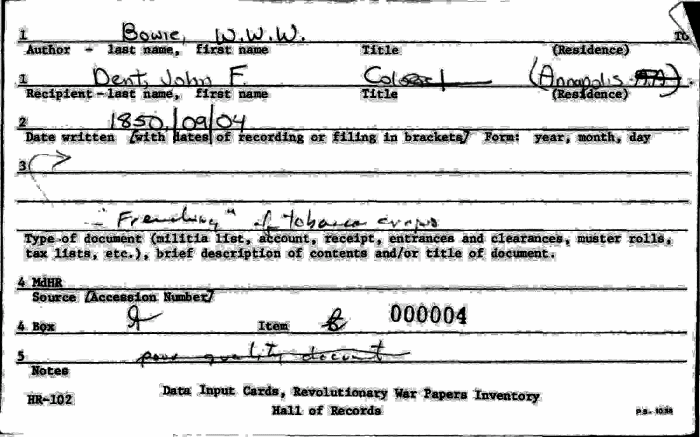 1 Bowie, W.W.W. TO
Author - last name, first name Title (Residence)
1 Dent, John F. Colonel (Annapolis
Recipient - last name, first name Title (Residence)
2 1850/09/04
Date written [with dates of recording or filing in brackets] Form: year, month, day
3
"Frenching" of tobacco crops
Type of document (militia list, account, receipt, entrances and clearances, muster rolls,
tax lists, etc.), brief description of contents and/or title of document.
4 MdHR
Source [Accession Number]
4 Box Item 000004
5 poor quality document
Notes
HR-102 Data Input Cards, Revolutionary War Papers Inventory
Hall of Records P.S.-1038